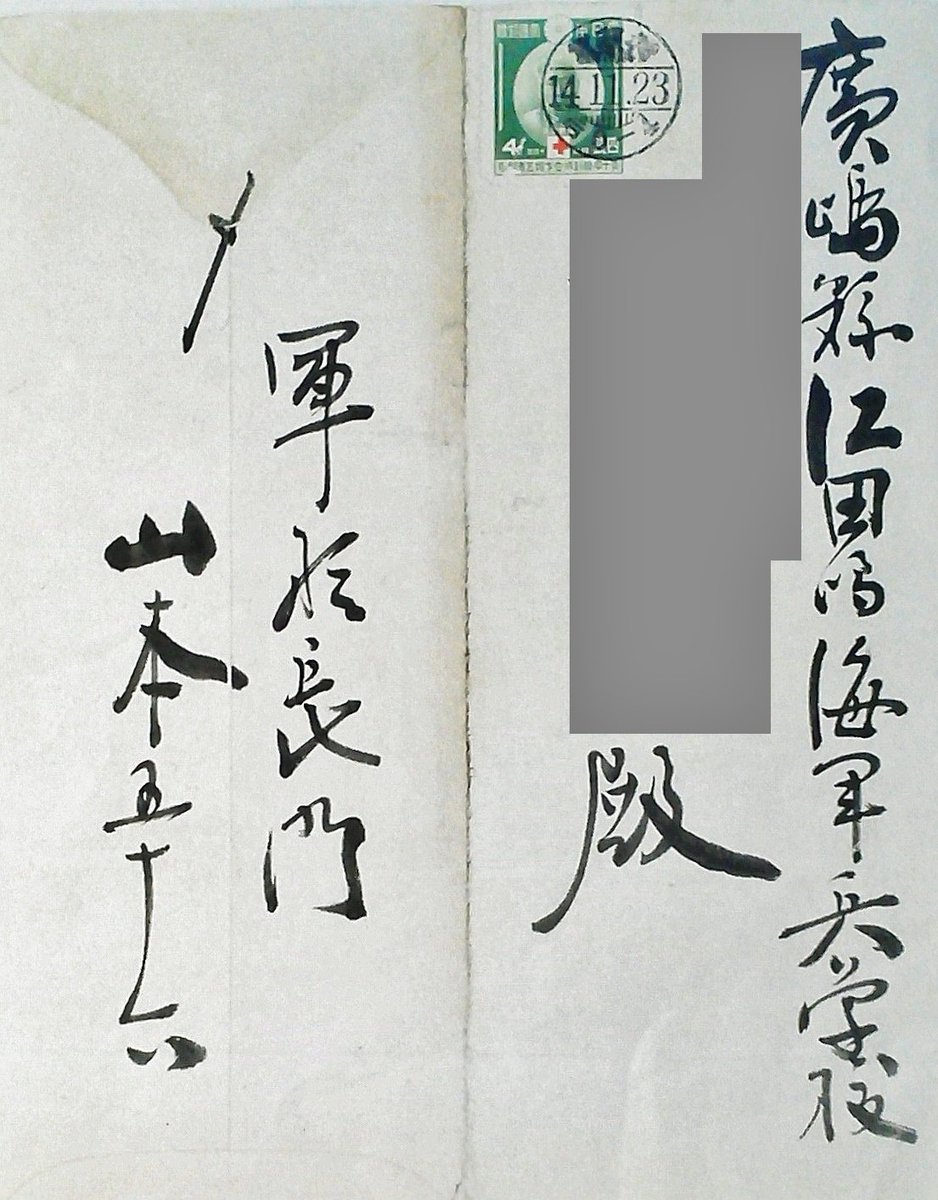 廣嶋縣江田嶋海軍兵学校
殿
14.11.23
4
軍艦長門
山本五十六
〆